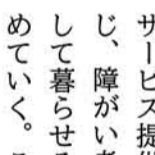 サービス提供
じ、障がい者
して暮らせる
めていく。こ